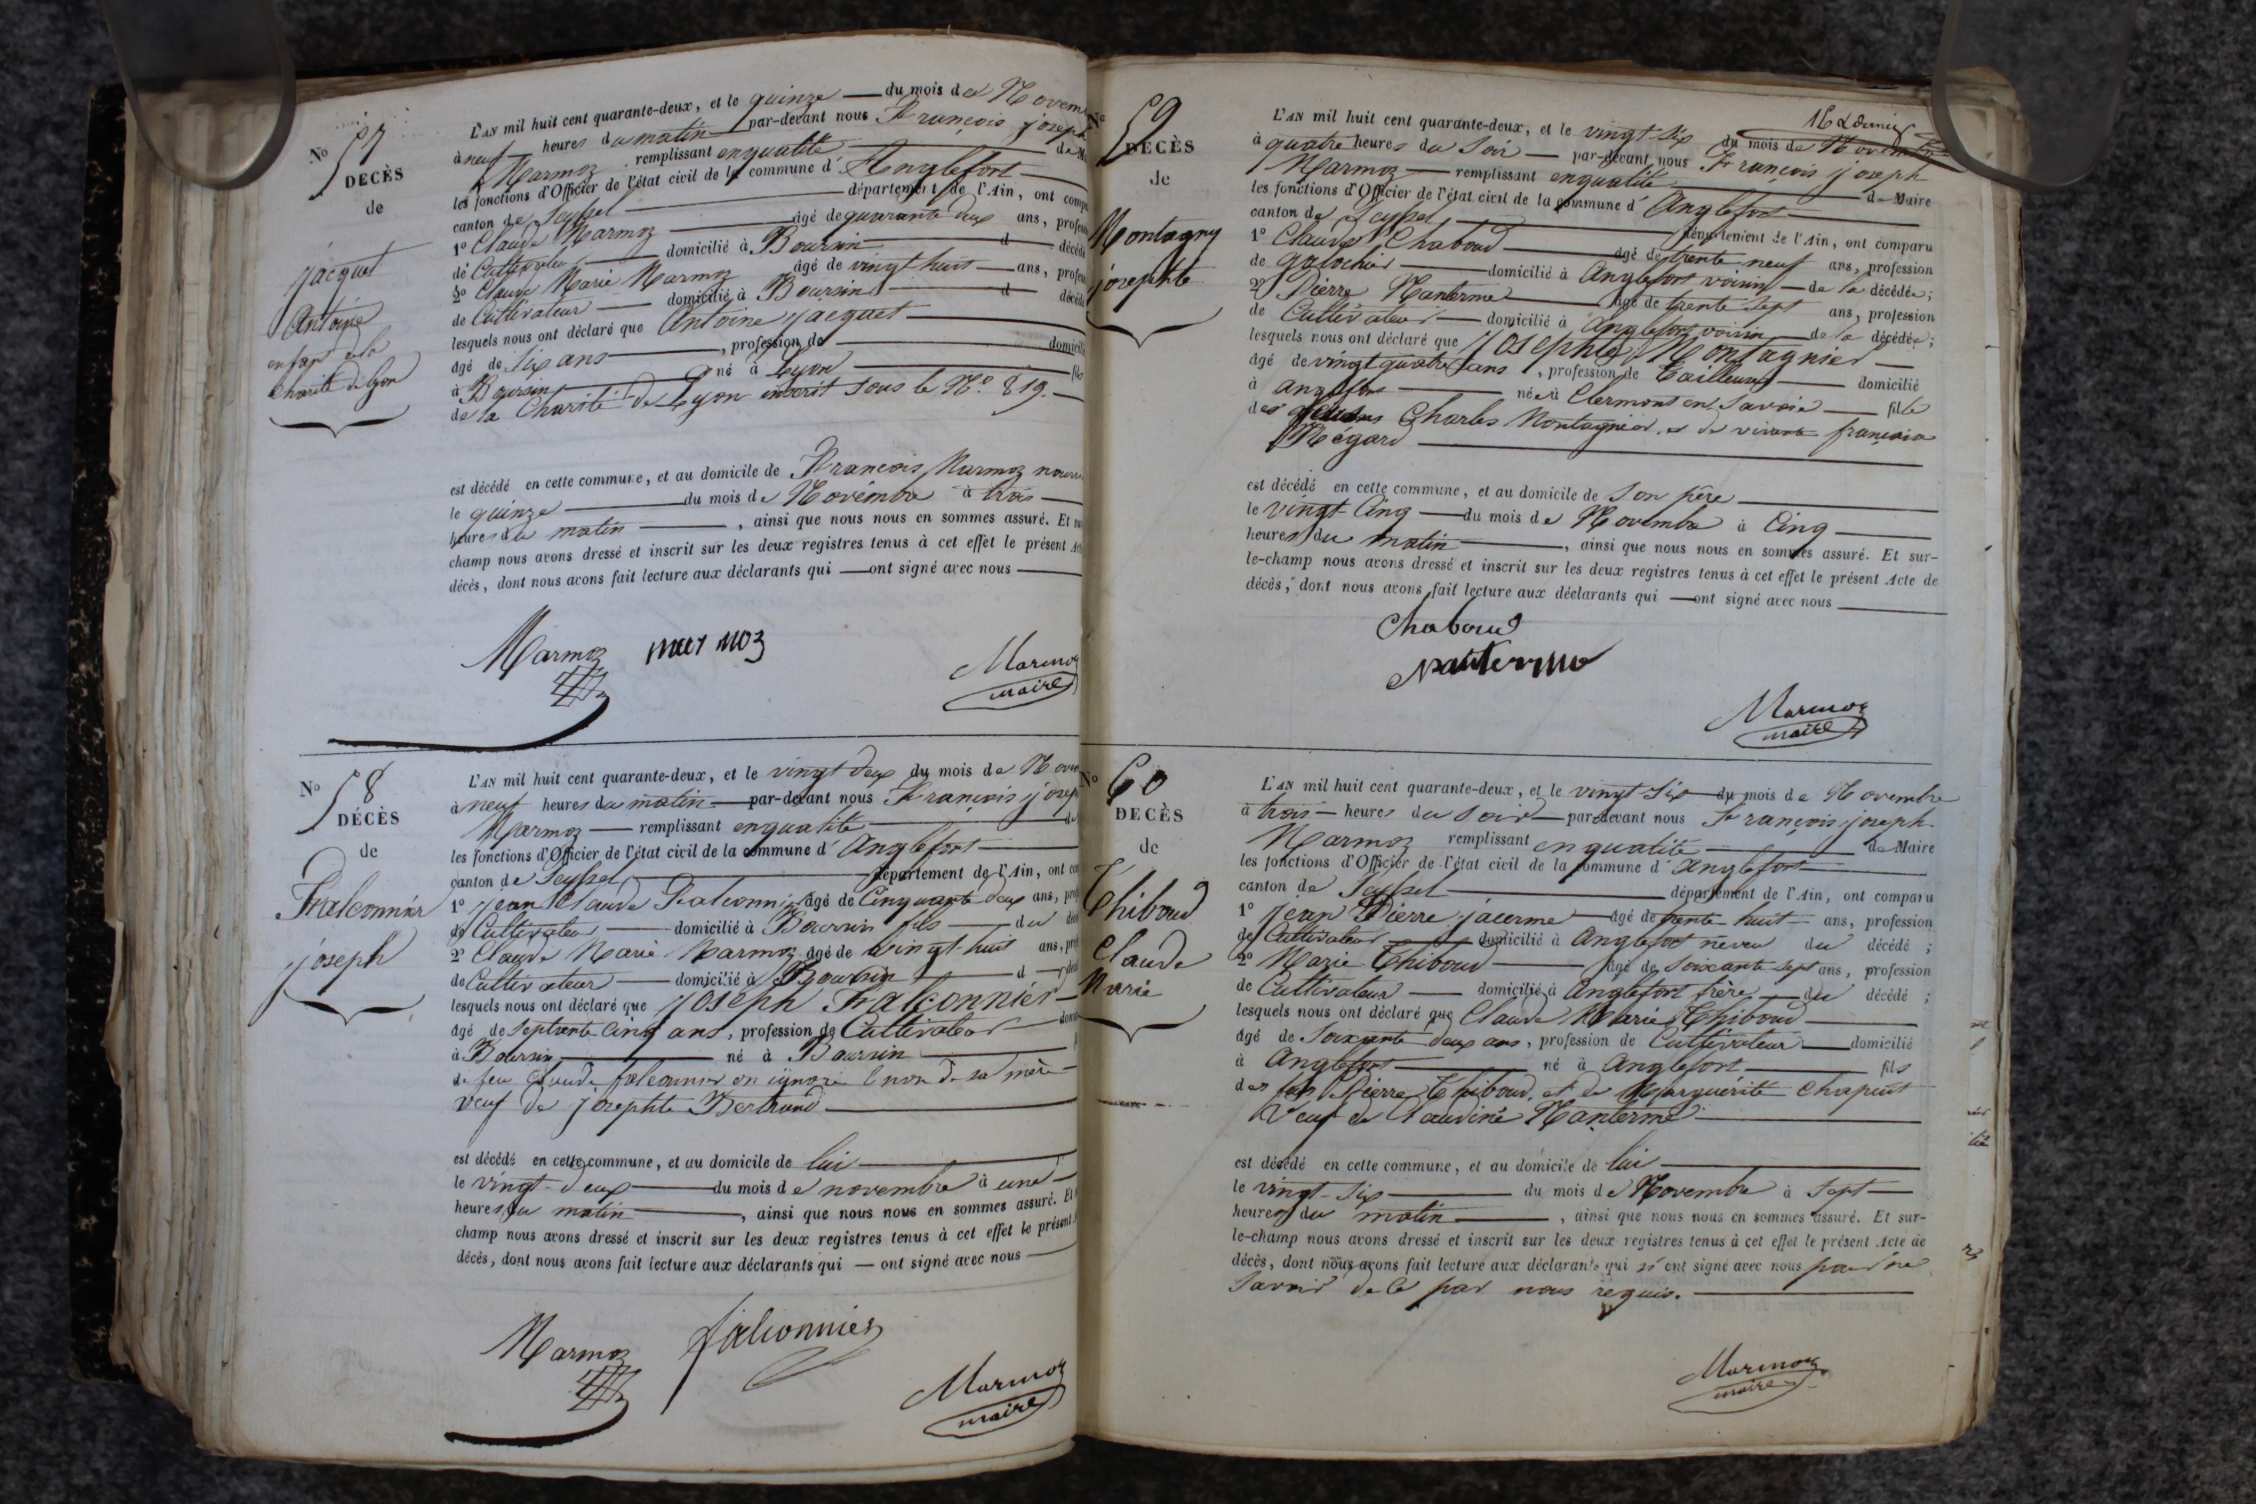 N° 57
DECÈS
de
jacquet
Antoine
enfant de la
charité de Lyon
L'AN mil huit cent quarante-deux, et le quinze du mois de Novem
à neuf heures du matin par-devant nous François joseph
Marmoz remplissant enqualité de M
les fonctions d'Officier de l'état civil de la commune d' Anglefort
canton de Seyssel département de l'Ain, ont compa
1° Claude Marmoz âgé de quarante deux ans, profess
de Cultivateur domicilié à Boursin d décédé
2° Claude Marie Marmoz âgé de vingt huit ans, profess
de Cultivateur domicilié à Boursin d décédé
lesquels nous ont déclaré que Antoine jacquet
âgé de six ans , profession de domicilié
à Boursin né à Lyon fils
de la Charité de Lyon inscrit sous le N° 819.
est décédé en cette commune, et au domicile de François Marmoz nourri
le quinze du mois de Novembre à trois
heures du matin , ainsi que nous nous en sommes assuré. Et sur
champ nous avons dressé et inscrit sur les deux registres tenus à cet effet le présent Ac
décès, dont nous avons fait lecture aux déclarants qui ont signé avec nous
Marmoz marmoz Marmoz
maire
N° 58
DÉCÈS
de
Falconnier
joseph
L'AN mil huit cent quarante-deux, et le vingt deux du mois de Nove
à neuf heures du matin par-devant nous François josep
Marmoz remplissant enqualité de
les fonctions d'Officier de l'état civil de la commune d' Anglefort
canton de Seyssel département de l'Ain, ont com
1° jean Claude Falconnier âgé de Cinquante deux ans, prof
de Cultivateur domicilié à Boursin fils du décé
2° Claude Marie Marmoz âgé de vingt huit ans, prof
de Cultivateur domicilié à Boursin d décé
lesquels nous ont déclaré que joseph Falconnier
âgé de septante cinq ans, profession de Cultivateur domi
à Boursin né à Boursin
de feu Claude falconnier on ignore le nom de sa mère
veuf de josephte Bertrand
est décédé en cette commune, et au domicile de lui
le vingt-deux du mois de novembre à une
heures du matin , ainsi que nous nous en sommes assuré. Et
champ nous avons dressé et inscrit sur les deux registres tenus à cet effet le présent
décès, dont nous avons fait lecture aux déclarants qui ont signé avec nous
Marmoz falconnier Marmoz
maire
N° 59
DÉCÈS
de
Montagny
josephte
L'AN mil huit cent quarante-deux, et le vingt six du mois de Novembre
à quatre heures du soir par-devant nous François joseph
Marmoz remplissant enqualité de Maire
les fonctions d'Officier de l'état civil de la commune d' Anglefort
canton de Seyssel département de l'Ain, ont comparu
1° Claude Chaboud âgé de trente neuf ans, profession
de galochier domicilié à Anglefort voisin de la décédée;
2° Pierre Nanterme âgé de trente sept ans, profession
de Cultivateur domicilié à Anglefort voisin de la décédée;
lesquels nous ont déclaré que josephte Montagnier
âgé de vingt quatre ans , profession de Tailleuse domicilié
à anglefort née à Clermont en Savoie fille
des Charles Montagnier et de vivante françoise
Mégard
est décédé en cette commune, et au domicile de son père
le vingt-Cinq du mois de Novembre à Cinq
heures du matin , ainsi que nous nous en sommes assuré. Et sur-
le-champ nous avons dressé et inscrit sur les deux registres tenus à cet effet le présent Acte de
décès, dont nous avons fait lecture aux déclarants qui ont signé avec nous
Chaboud
Nanterme
Marmoz
maire
N° 60
DÉCÈS
de
Thiboud
Claude
Marie
L'AN mil huit cent quarante-deux, et le vingt-six du mois de Novembre
à trois heures du soir par-devant nous François joseph
Marmoz remplissant enqualité de Maire
les fonctions d'Officier de l'état civil de la commune d' anglefort
canton de Seyssel département de l'Ain, ont comparu
1° jean Pierre jacerme âgé de trente huit ans, profession
de Cultivateur domicilié à Anglefort neveu du décédé;
2° Marie Thiboud âgé de soixante sept ans, profession
de Cultivateur domicilié à Anglefort frère du décédé;
lesquels nous ont déclaré que Claude Marie Thiboud
âgé de soixante deux ans, profession de Cultivateur domicilié
à Anglefort né à Anglefort fils
des feu Pierre Thiboud, et de Marguérite Chapuis
Veuf de Claudine Nanterme
est décédé en cette commune, et au domicile de lui
le vingt-six du mois de Novembre à sept
heures du matin , ainsi que nous nous en sommes assuré. Et sur-
le-champ nous avons dressé et inscrit sur les deux registres tenus à cet effet le présent Acte de
décès, dont nous avons fait lecture aux déclarants qui n'ont signé avec nous pour ne
savoir de ce par nous requis.
Marmoz
maire